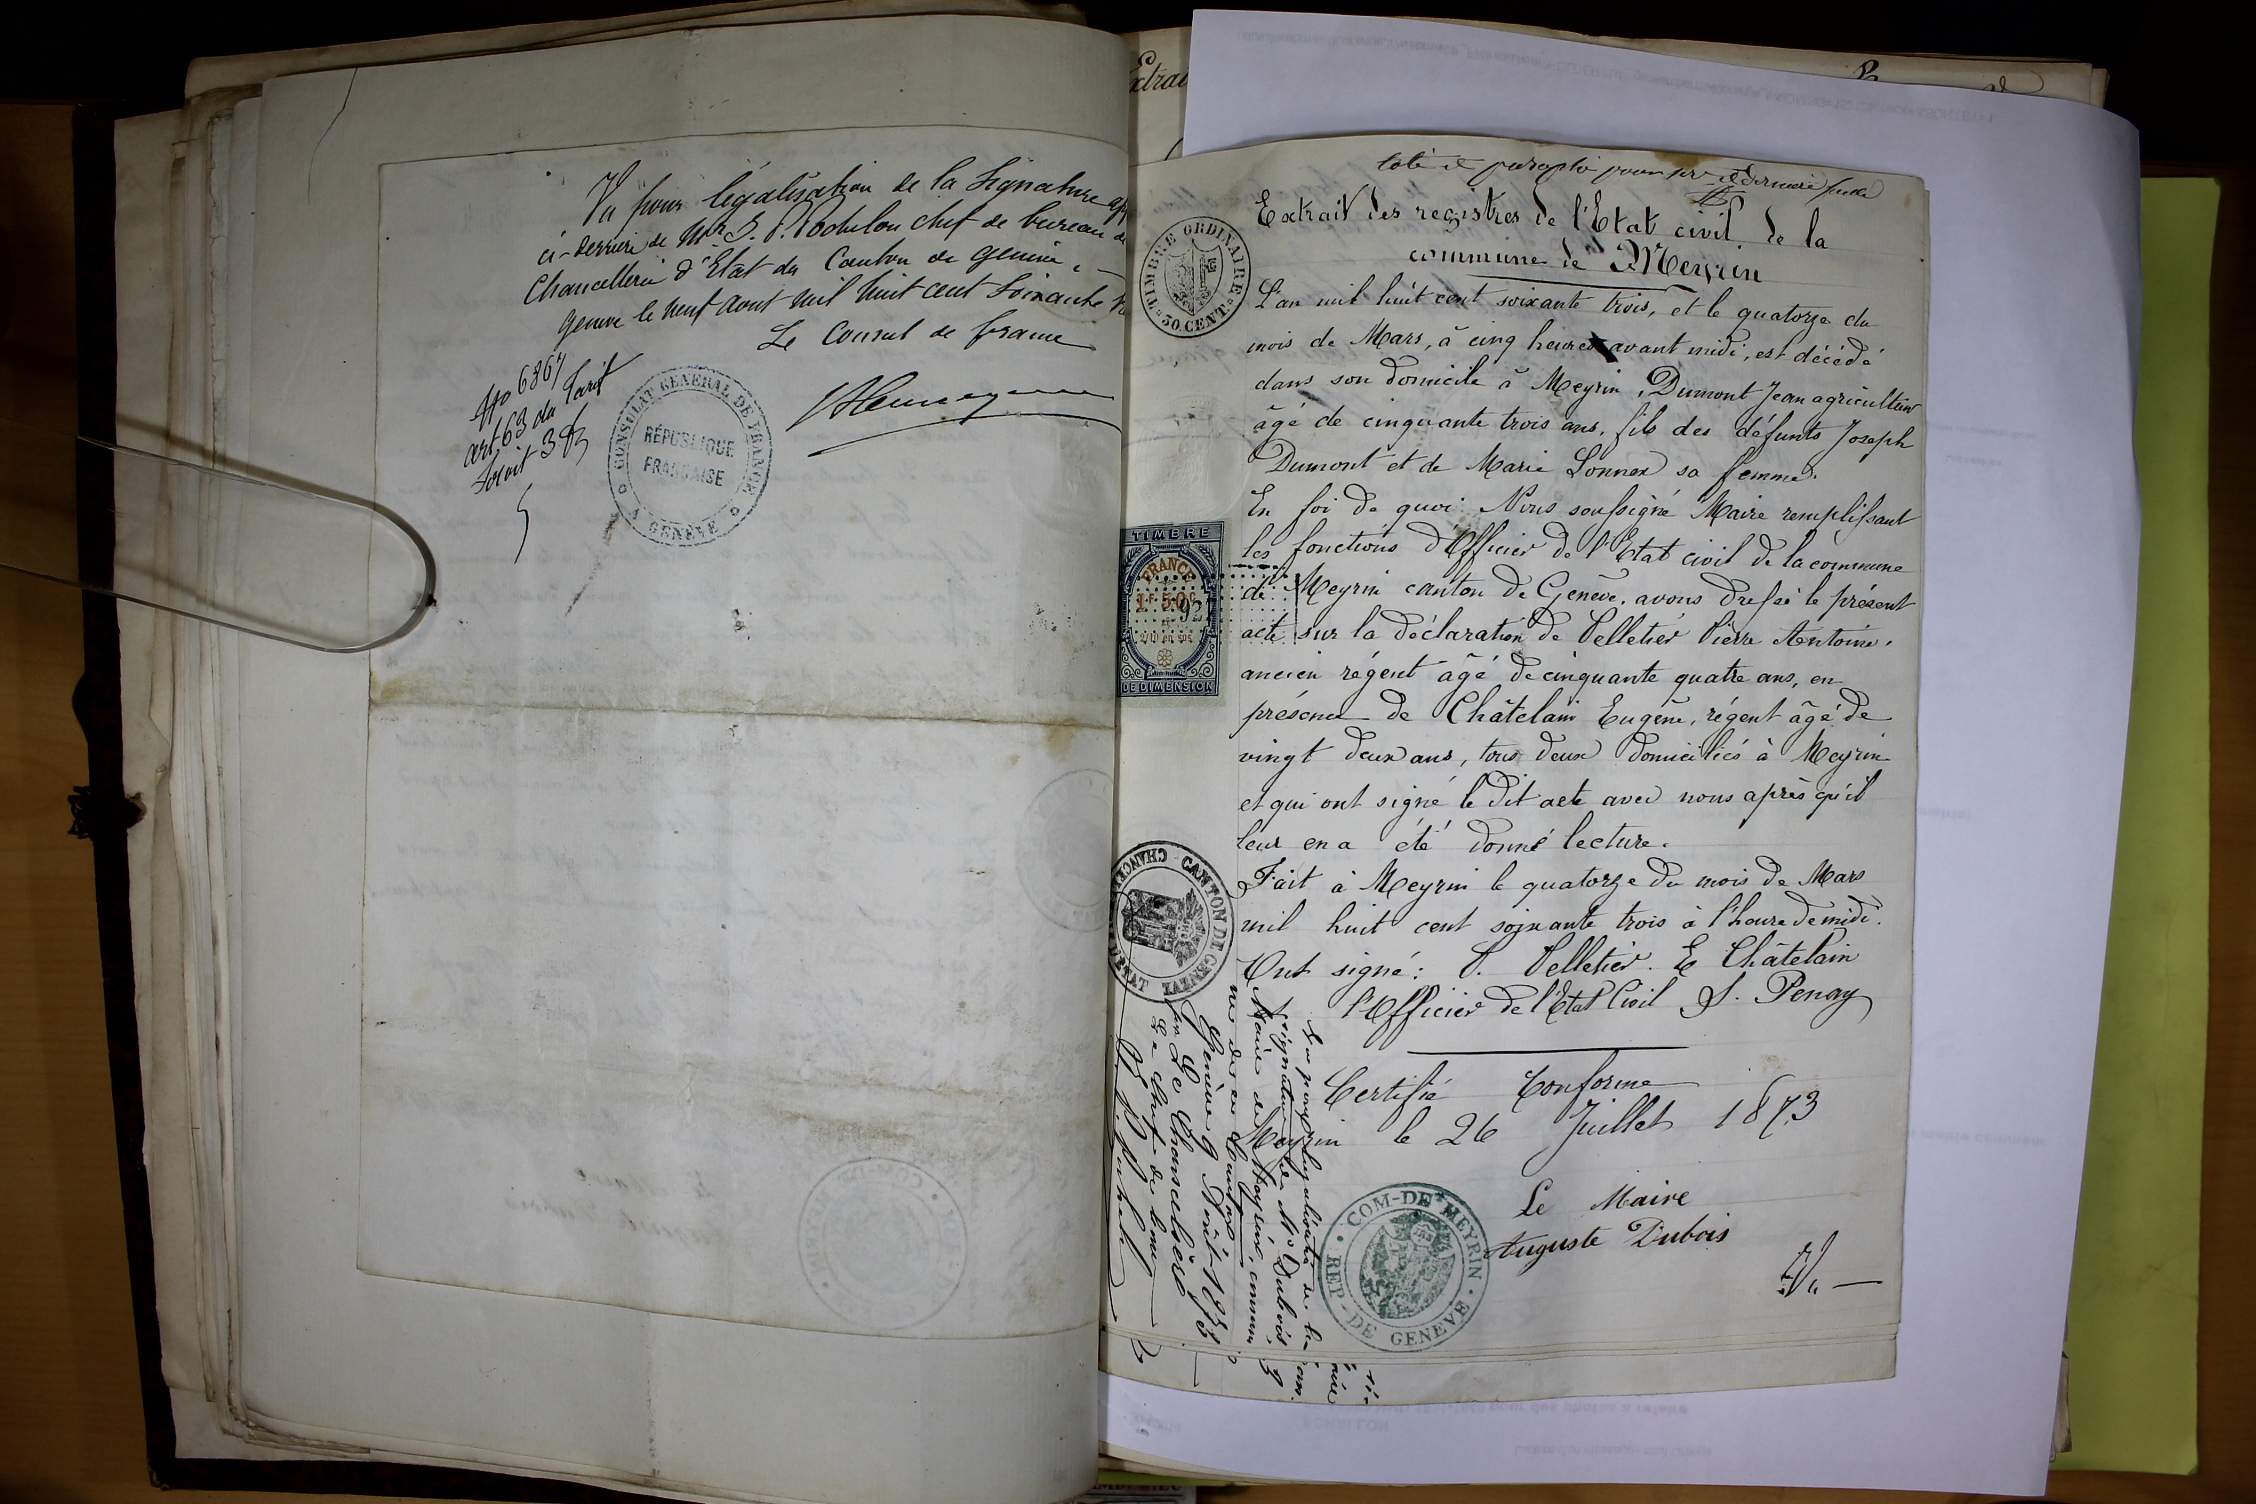 Vu pour légalisation de la Signature app
ci-derrière de Mr J. P. Pochelon chef de bureau de
Chancellerie d'Etat du Canton de genève.
genève le neuf aout mil huit cent Soixante
Le Consul de france
No 6867
art 63 du Tarif
Soit 3 f
CONSULAT GENERAL DE FRANCE
A GENÈVE
RÉPUBLIQUE
FRANÇAISE
Extrai
coté et paraphé pour pre et dernière feuille
TIMBRE ORDINAIRE
30. CENT.
Extrait des registres de l'Etat civil de la
commune de Meyrin
L'an mil huit cent soixante trois, et le quatorze du
mois de Mars, à cinq heures avant midi, est décédé
dans son domicile à Meyrin, Dumont Jean agriculteur
âgé de cinquante trois ans, fils des défunts Joseph
Dumont et de Marie Lonnex sa femme.
En foi de quoi Nous soussigné Maire remplissant
les fonctions d'Officier de l'Etat civil de la commune
de Meyrin canton de Genève, avons dressé le présent
acte sur la déclaration de Pelletier Pierre Antoine,
ancien régent âgé de cinquante quatre ans, en
présence de Châtelain Eugène, régent âgé de
vingt deux ans, tous deux domiciliés à Meyrin
et qui ont signé le dit acte avec nous après qu'il
leur en a été donné lecture.
Fait à Meyrin le quatorze du mois de Mars
mil huit cent soixante trois à l'heure de midi.
Ont signé: P. Pelletier. E Châtelain
l'Officier de l'Etat Civil S. Penay
Certifié Conforme
Meyrin le 26 Juillet 1873
Le Maire
Auguste Dubois
COM-DE MEYRIN
REP-DE GENEVE
TIMBRE
FRANCE
1F 50C
92
DE DIMENSION
CANTON DE GENEVE
CHANCEL
signature de Mr Dubois,
Maire de Meyrin, commu
ne de ce Canton
Genève 9 Août 1873
Pr Le Chancelier
Le chef de bureau